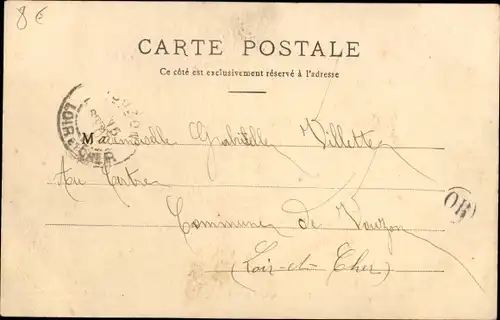 8 €
CARTE POSTALE
Ce côté est exclusivement réservé à l'adresse
Mademoiselle Villette
Au Tertre
Commune de Vouzon
(Loir-et-Cher)
OR
LOIR ET CHER